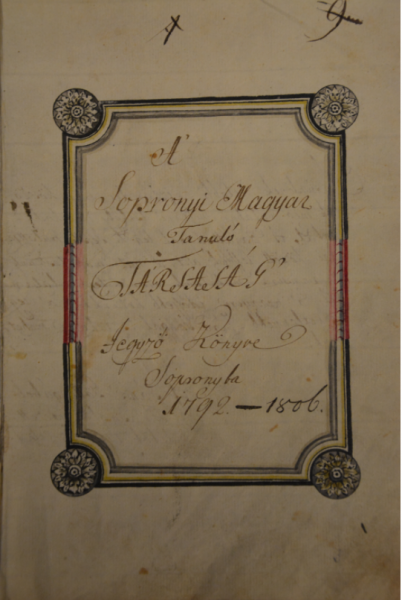 A'
Sopronyi Magyar
Tanuló
TÁRSASÁG'
Jegyző Könyve
Sopronyba
1792. — 1806.